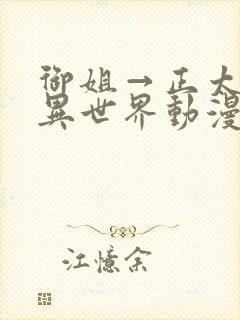 御姐→正太
異世界動漫
江憶余